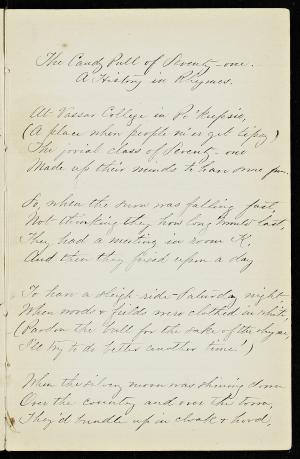 The Candy Pull of Seventy-one.
A History in Rhymes.
At Vassar College in Po'keepsie,
(A place where people ne'er get tipsy)
The jovial class of Seventy-one
Made up their minds to have some fun.
So, when the snow was falling fast,
Not thinking they how long 'twould last,
They had a meeting in room K,
And then they fixed upon a day
To have a sleigh-ride Saturday night,
When woods & fields were clothed in white,
(Pardon the bull for the sake of the rhyme,
I'll try to do better another time!)
When the silvery moon was shining down
Over the country and over the town,
They'd bundle up in cloak & hood,